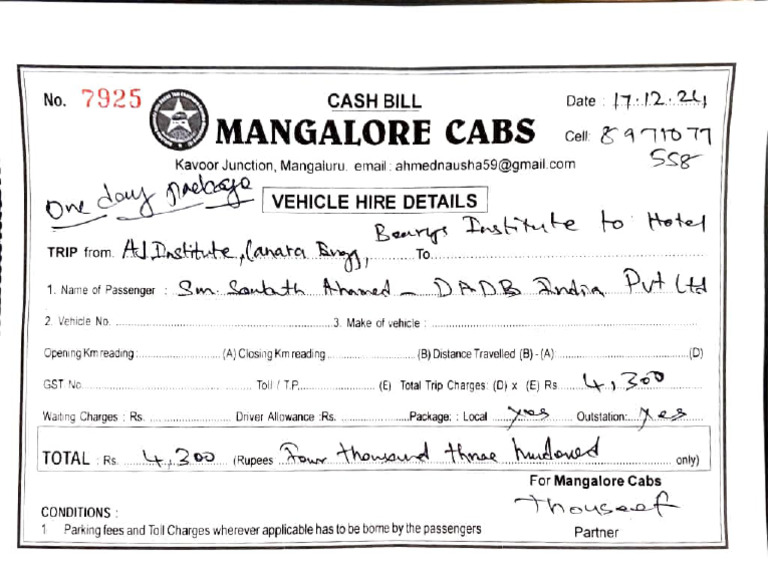 No. 7925
CASH BILL
Date : 17.12.24
MANGALORE CABS
Cell: 8971077
558
Kavoor Junction, Mangaluru. email : ahmednausha59@gmail.com
One day package
VEHICLE HIRE DETAILS
Bearys Institute to Hotel
TRIP from. AJ Institute, Canara Engg, To
1. Name of Passenger : Ahamed - DADB India Pvt Ltd
2. Vehicle No. 3. Make of vehicle :
Opening Km reading: (A) Closing Km reading (B) Distance Travelled (B) - (A) (D)
GST No. Toll / T.P. (E) Total Trip Charges: (D) x (E) Rs. 4,300
Waiting Charges : Rs. Driver Allowance :Rs. Package: : Local yes Outstation: yes
TOTAL : Rs. 4,300 (Rupees Four thousand three hundored only)
For Mangalore Cabs
Thouseef
CONDITIONS :
1 Parking fees and Toll Charges wherever applicable has to be borne by the passengers
Partner